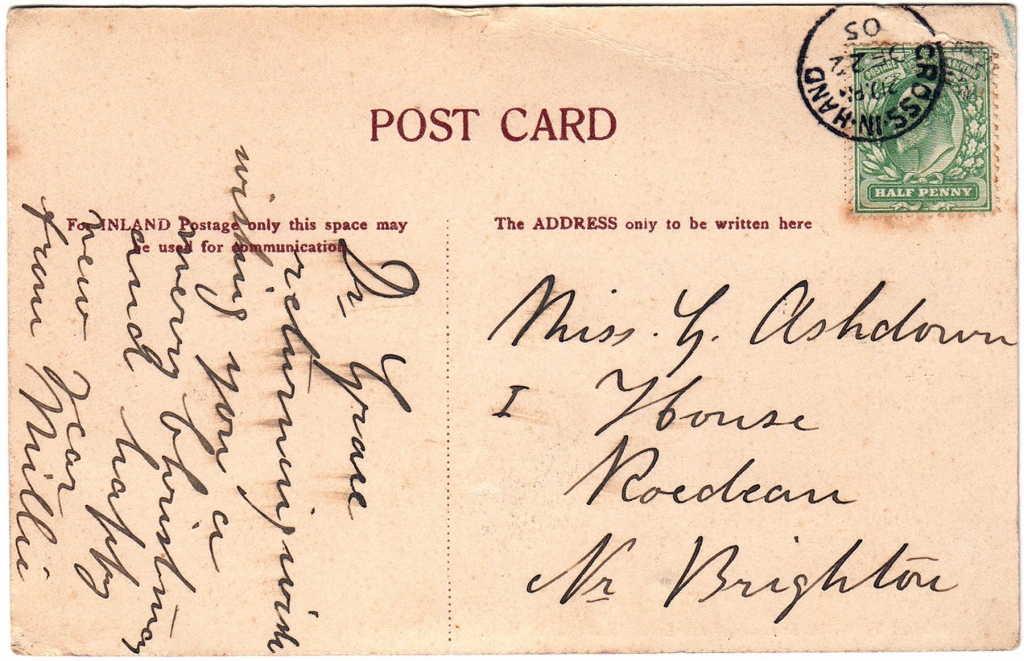 POST CARD
For INLAND Postage only this space may
be used for communication
The ADDRESS only to be written here
CROSS-IN-HAND
DE 24
05
HALF PENNY
Dr Grace
returning wish
wishing you a
merry Christmas
and happy
new Year
from Millie
Miss. G. Ashdown
I House
Roedean
Nr Brighton